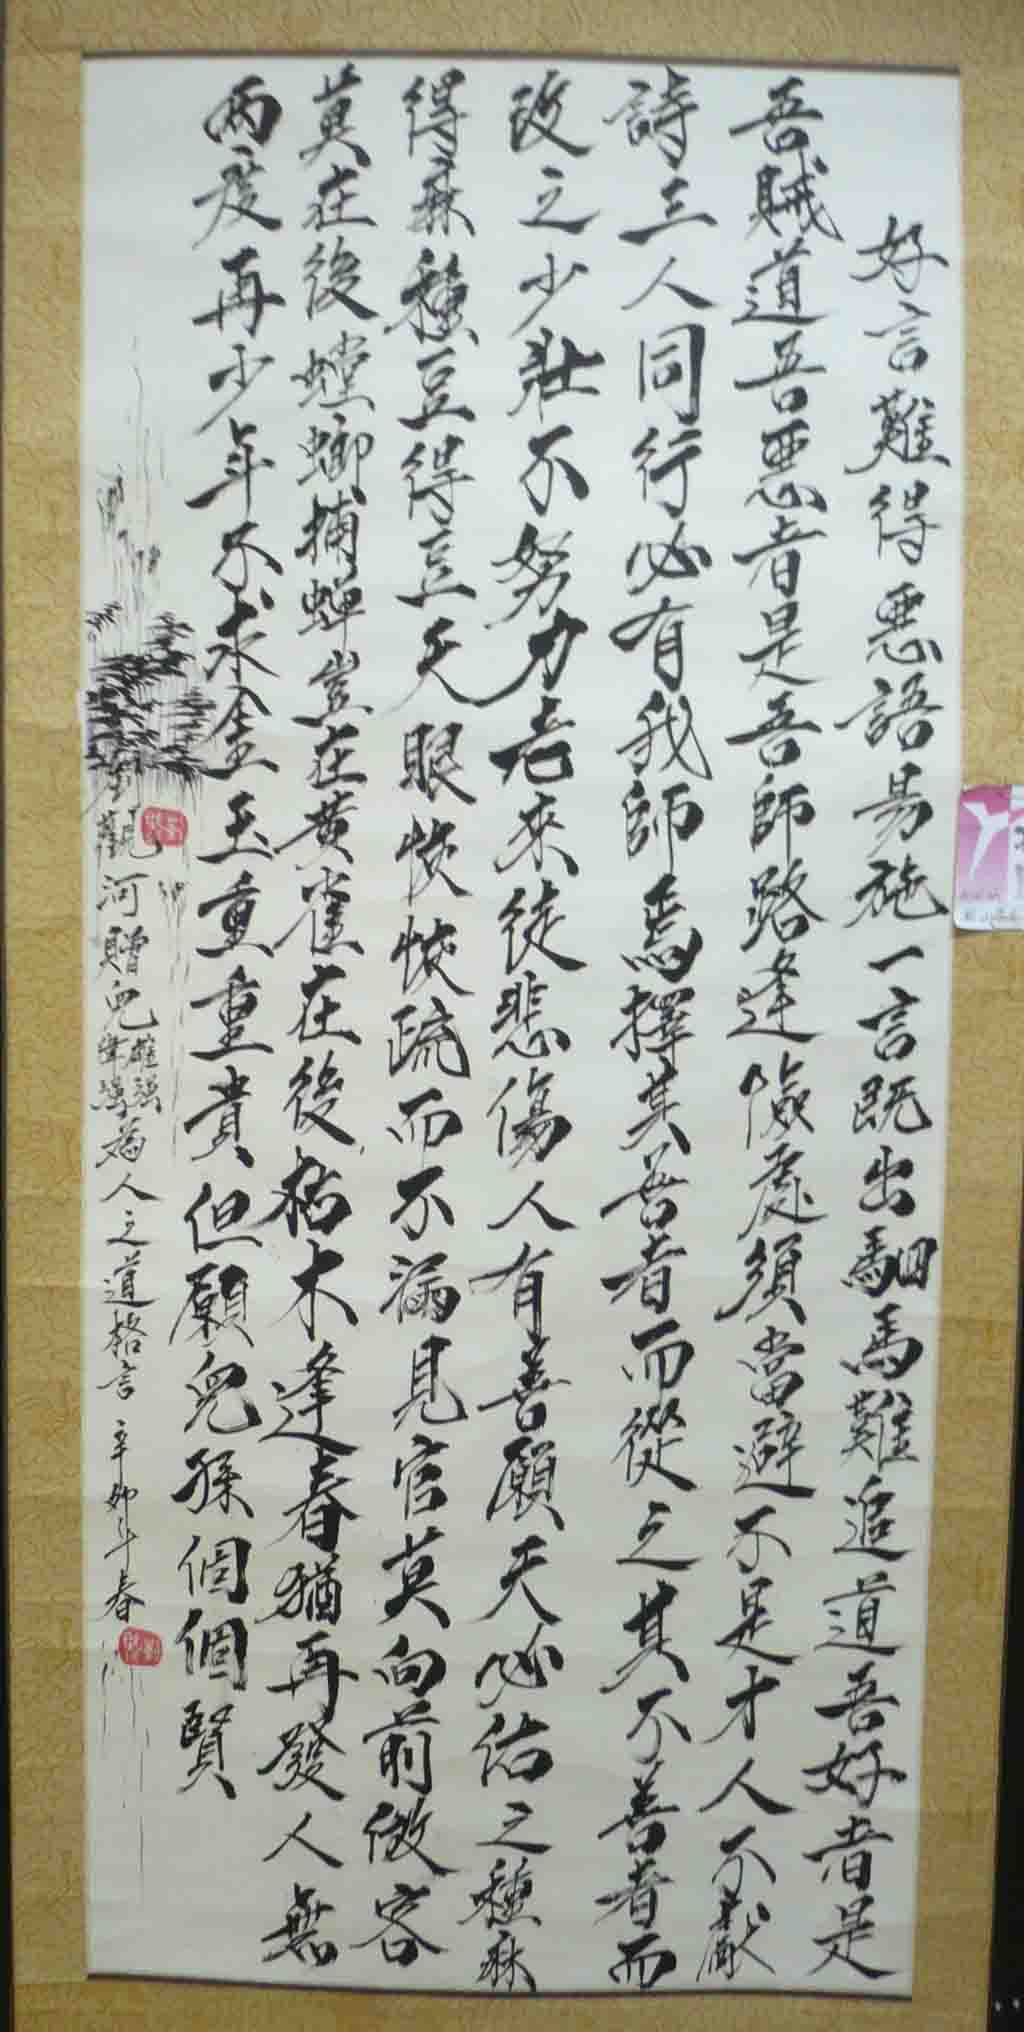 好言難得惡語易施一言既出駟馬難追道吾好者是
吾賊道吾惡者是吾師路逢險處須當避不是才人不獻
詩三人同行必有我師焉擇其善者而從之其不善者而
改之少壯不努力老來徒悲傷人有善願天必佑之種麻
得麻種豆得豆天眼恢恢疏而不漏見官莫向前做客
莫在後螳螂捕蟬豈在黃雀在後枯木逢春猶再發人無
兩度再少年不求金玉重重貴但願兒孫個個賢
觀河贈兒為人之道格言 辛卯年春